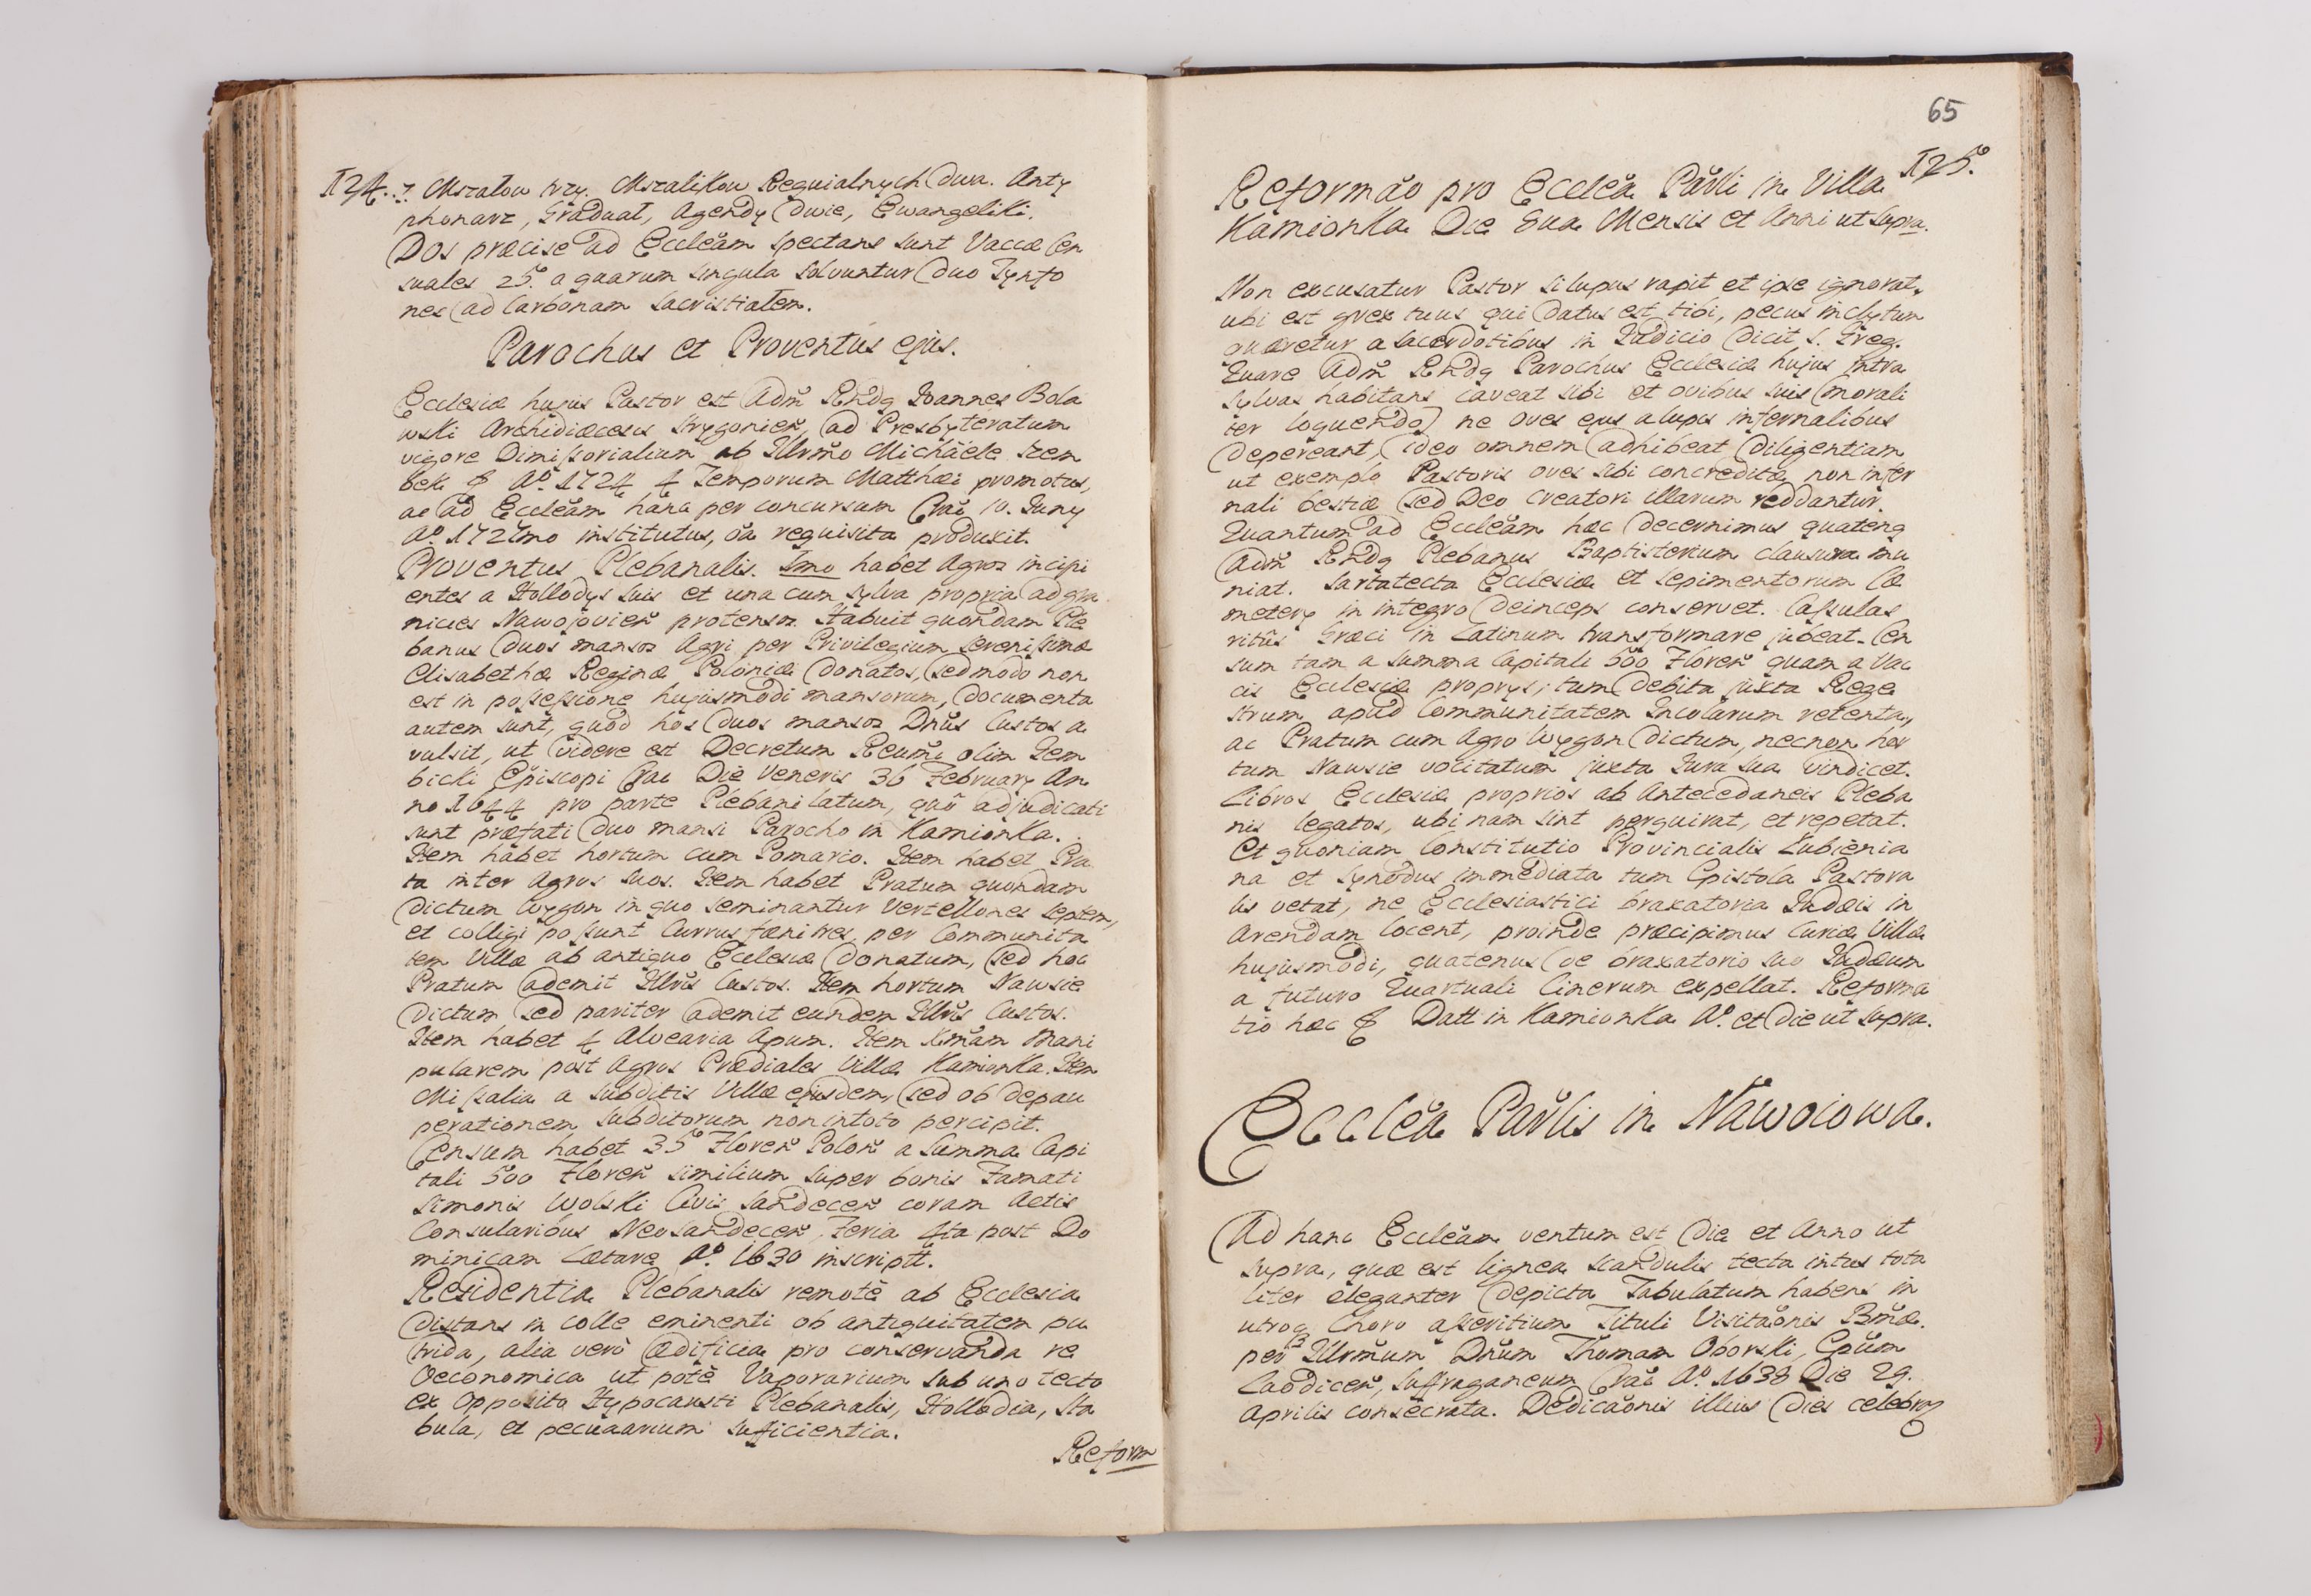 124. Mszałow trzy. Mszalikow Requialnych dwa. Anty
phonarz, Graduał, Agendy dwie, Ewangeliki.
Dos præcise ad Eccleãm spectans sunt Vaccæ Cen
suales 25. a quarum singula solvuntur duo Tynfo
nes ad Carbonam Sacristialem.
Parochus et Proventus ejus.
Ecclesiæ hujus Pastor est Adm̃ Rñdq Ioannes Bola
wski Archidiæcesis Strygonień, ad Presbyteratum
vigore Dimissorialium ab Illrm̃o Michäele Szem
bek &. Aº. 1724 4 Temporum Matthæi promotus,
ac ad Eccleãm hanc per concursum Crac̃ 10. Juny
Aº. 1727mo institutus, õa requisita produxit.
Proventus Plebanalis. Imo habet Agros incipi
entes a Hollodys suis et una cum sylva propria ad gra
nicies Nawojovień protensos. Habuit quondam Ple
banus duos mansos Agri per Privilegium serenissimæ
Elisabethæ Reginæ Poloniæ donatos, sed modo non
est in possessione hujusmodi mansorum, documenta
autem sunt, quod hos duos mansos Dn̄us Custos a
vulsit, ut videre est Decretum Reum̃i olim Gem
bicki Episcopi Crac Die Veneris 36 February An
no 1644 pro parte Plebani latum, quô adjudicati
sunt præfati duo mansi Parocho in Kamionka.
Item habet hortum cum Pomario. Item habet Pra
ta inter Agros suos. Item habet Pratum quondam
dictum Wygon in quo seminantur Vertellones septem,
et colligi possunt Currus fæni tres, per Communita
tem Villæ ab antiquo Ecclesiæ donatum, sed hoc
Pratum ademit Illris̃ Custos. Item hortum Nawsie
dictum sed pariter ademit eundem Illris̃ Custos.
Item habet 4 Alvearia Apum. Item Xmãm Mani
pularem post Agros Prædiales Villæ Kamionka. Item
Missalia a subditis Villæ ejusdem, sed ob depau
perationem subditorum non in toto percipit.
Censum habet 35 Floreñ Poloñ a Summa Capi
tali 500 Floreñ similium super bonis Famati
Simonis Wolski Civis Sandeceñ coram Actis
Consularibus NeoSandeceñ, Feria 4ta post Do
minicam Lætare Aº. 1630 inscriptt.
Residentia Plebanalis remotè ab Ecclesia
distans in colle eminenti ob antiquitatem pu
trida, alia verò ædificia pro conservanda re
Oeconomica ut potè Vaporarium sub uno tecto
ex Opposito Hypocausti Plebanalis, Hollodia, Sta
bula, et pecuaarium sufficientia.
Reform
65
125.
Reformão pro Ecclẽa Parl̃i in Villa
Kamionka Die 8va Mensis et Anni ut supra.
Non excusatur Pastor si lupus rapit et ipse ignorat,
ubi est grex tuus qui datus est tibi, pecus inclytum
quæretur a sacerdotibus in Iudicio dicit S. Greg.
Quare Adm̃ Rñdq Parochus Ecclesiæ hujus intra
sylvas habitans caveat sibi et ovibus suis (morali
ter loquendo) ne Oves ejus a lupis infernalibus
depereant, ideo omnem adhibeat diligentiam
ut exemplo Pastoris oves sibi concreditæ non infer
nali bestiæ sed Deo Creatori illarum reddantur.
Quantum ad Eccleãm hæc decernimus quatenq
Adm̃ Rñdq Plebanus Baptisterium clausura mu
niat. Sartatecta Ecclesiæ et sepimentorum Cæ
metery in integro deinceps conservet. Cassulas
ritûs Græci in Latinum transformare jubeat. Cen
sum tam a summa Capitali 500 Floreñ quam a Vac
cis Ecclesiæ proprys; tum debita juxta Rege
strum apud Communitatem Incolarum retenta,
ac Pratum cum Agro Wygon dictum, necnon hor
tum Nawsie vocitatum juxta Iura sua vindicet.
Libros Ecclesiæ proprios ab Antecedaneis Pleba
nis legatos, ubinam sint perquirat, et repetat.
Et quoniam Constitutio Provincialis Lubienia
na et Synodus immediata tum Epistola Pastora
lis vetat, ne Ecclesiastici braxatoria Iudæis in
Arendam locent, proinde præcipimus Curiæ Villæ
hujusmodi, quatenus de braxatorio suo Iudæum
a futuro Quartuali Cinerum expellat. Reforma
tio hæc &. Datt in Kamionka Aº. et Die ut supra.
Ecclẽa Parl̃is in Nawoiowa.
Ad hanc Eccleãm ventum est Die et Anno ut
supra, quæ est lignea scandulis tecta intus tota
liter eleganter depicta Tabulatum habens in
utroq Choro asseritium Tituli Visitãonis Bm̃æ.
per Illrm̃um Dñum Thomam Oborski, Epũm
Laodiceñ, Suffraganeum Crac̃ Aº. 1638 Die 29.
Aprilis consecrata. Dedicãonis illius dies celebrq